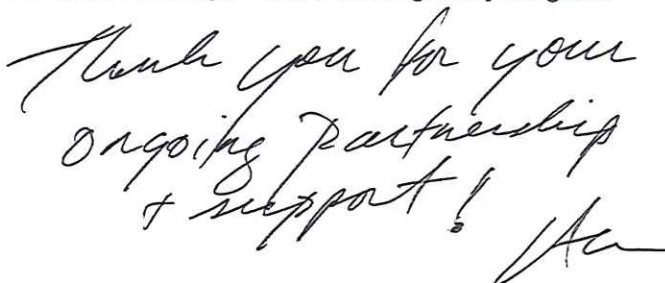 Thank you for your
ongoing partnership
+ support!